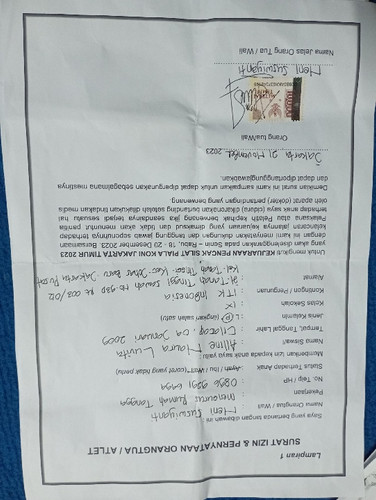 Lampiran 1
SURAT IZIN & PERNYATAAN ORANGTUA / ATLET
Saya yang bertanda tangan di bawah ini
Nama Orangtua / Wali : Meni Suswiyanti
Pekerjaan : Mengurus Rumah Tangga
No. Telp / HP :
Status terhadap Anak : Ayah / Ibu / Wali* (coret yang tidak perlu)
Memberikan Izin kepada anak saya yaitu :
Nama Siswa/i : Alline Maura Luvita
Tempat, Tanggal Lahir : Cilacap, 09 Januari 2009
Jenis Kelamin : L / P (lingkari salah satu)
Kelas Sekolah : IX
Kontingen / Perguruan : TTK Indonesia
Alamat : Jl Tanah Tinggi Sawah no. Rt 001/02
Kel. Tanah Tinggi Kec. Johar Baru Jakarta Pusat
Untuk mengikuti KEJUARAAN PENCAK SILAT PIALA WALI KOTA JAKARTA TIMUR 2023
yang akan diselenggarakan pada Senin – Rabu, 18 - 20 Desember 2023. Bersamaan
dengan ini kami menyatakan dukungan dan tanggung jawab sepenuhnya terhadap
kelancaran jalannya kejuaraan yang dimaksud dan tidak akan menuntut panitia
Pelaksana atau Pelatih Kepala berwenang jika seandainya terjadi sesuatu hal
terhadap anak saya (cidera) dikarenakan bertanding setelah dilakukan tindakan medis
oleh aparat (dokter) pertandingan yang berwenang.
Demikian surat ini kami sampaikan untuk dapat dipergunakan sebagaimana mestinya
dan dapat dipertanggungjawabkan.
Jakarta 21 November 2023
Orang tua/Wali
10000
Meni Suswiyanti
Nama Jelas Orang Tua / Wali